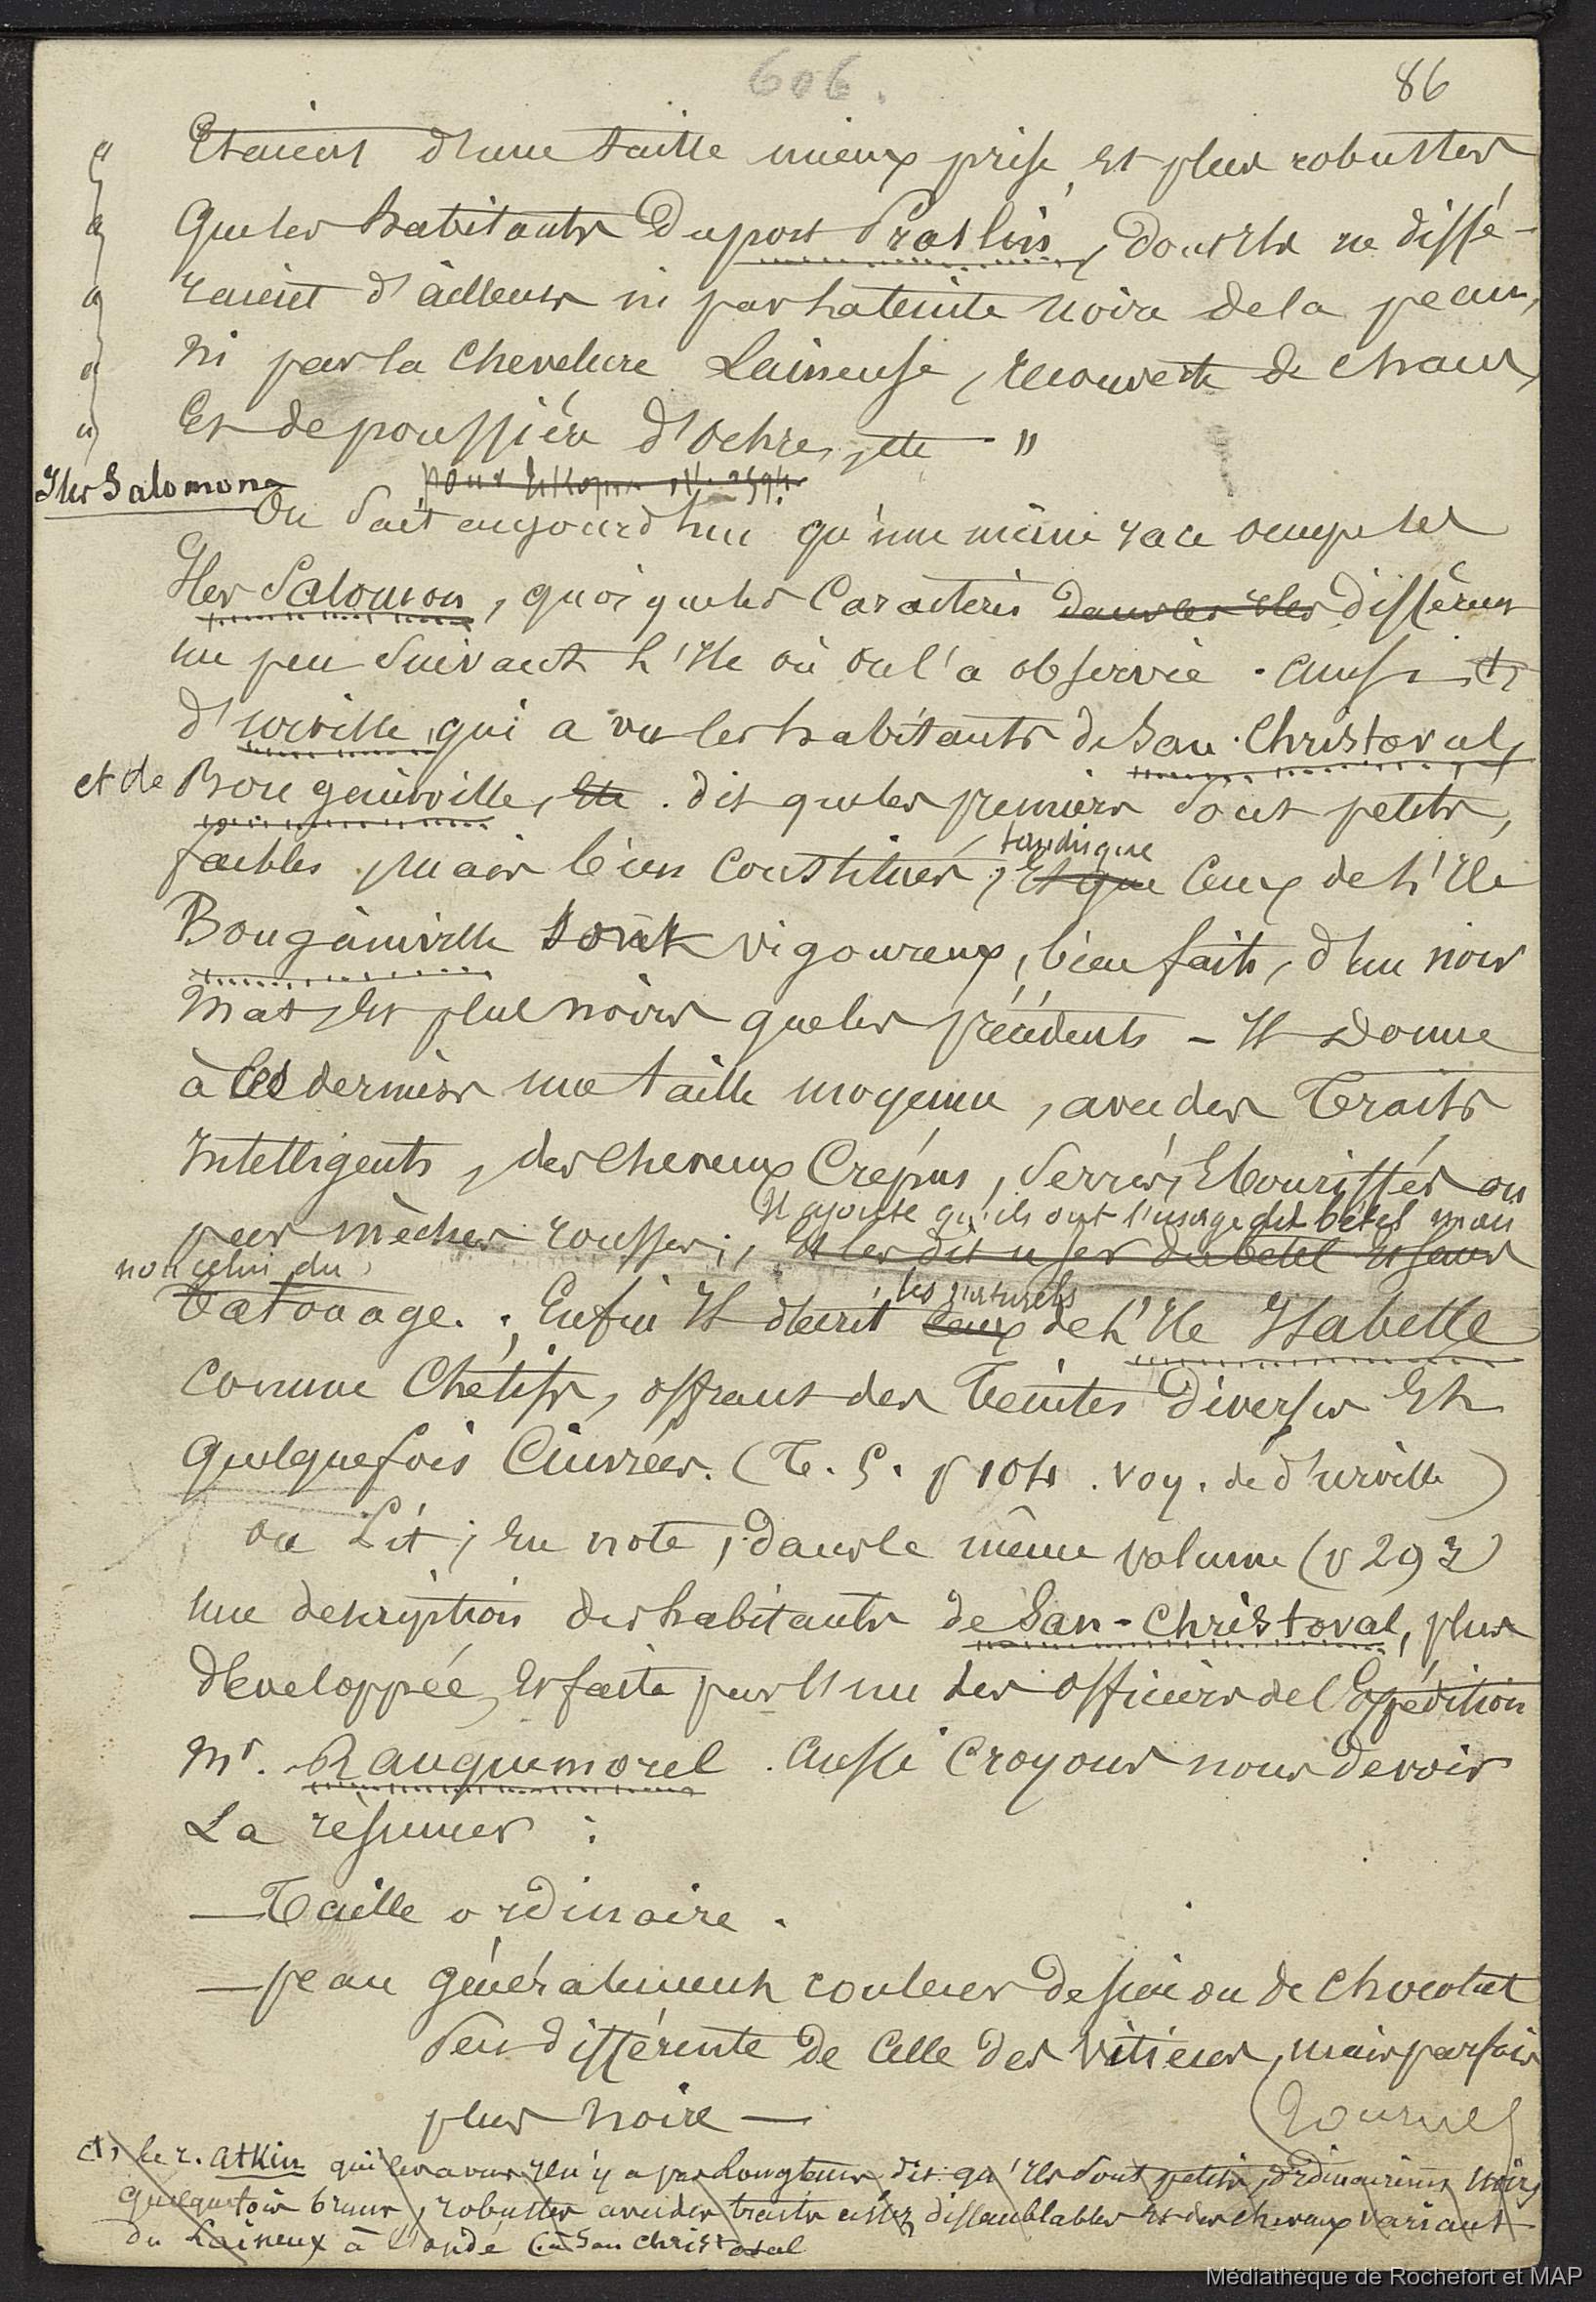 606.
86
" Etaient d'une taille mieux prise, et plus robustes
" que les habitants du port Praslin, dont ils ne diffé-
" raient d'ailleurs ni par la teinte noire de la peau,
" ni par la chevelure Laineuse, recouverte de chaux,
" et de poussière d'ochre, etc - "
Iles Salomons
pour
On sait aujourd'hui qu'une même race occupe les
Iles Salomon, quoique les Caractères dans les iles diffèrent
un peu suivant l'Ile où on l'a observée. ainsi (+)
d'urville, qui a vu les habitants de San-Christoval,
et de Bougainville, etc. dit que les premiers sont petits,
tandisque
faibles mais bien constitués, et que ceux de l'Ile
Bougainville sont vigoureux, bien faits, d'un noir
mat, et plus noirs que les précédents - Il donne
à ces derniers une taille moyenne, avec des Traits
Intelligents, des cheveux Crépus, serrés, Ebouriffés ou
Il ajoute qu'ils ont l'usage du bétel mais
par mèches rousses; il les dit user du betel et sans
non celui du
Tatouage. ; Enfin Il décrit ceux les naturels de l'Ile Isabelle
comme Chétifs, offrant des Teintes Diverses Et
quelquefois Cuivrées. (T. 5. p 104. voy. de d'urville)
on Lit, en note, dans le même volume (p 293)
une description des habitants de San-Christoval, plus
développée, et faite par l'un des officiers de l'Expédition
Mr. Rauquemorel. aussi Croyons nous devoir
La résumer :
— Taille ordinaire.
— peau généralement couleur de suie ou de chocolat
peu différente de celle des Vitiens, mais parfois
plus noire —
Tournez
(+) le r. Atkin qui les a vus Il n'y a pas Longtems, dit qu'Ils sont petits, ordinairement noirs,
quelquefois bruns, robustes avec des traits assez dissemblables et des cheveux variant
du Laineux à l'ondé (à San Christoval
Médiathèque de Rochefort et MAP